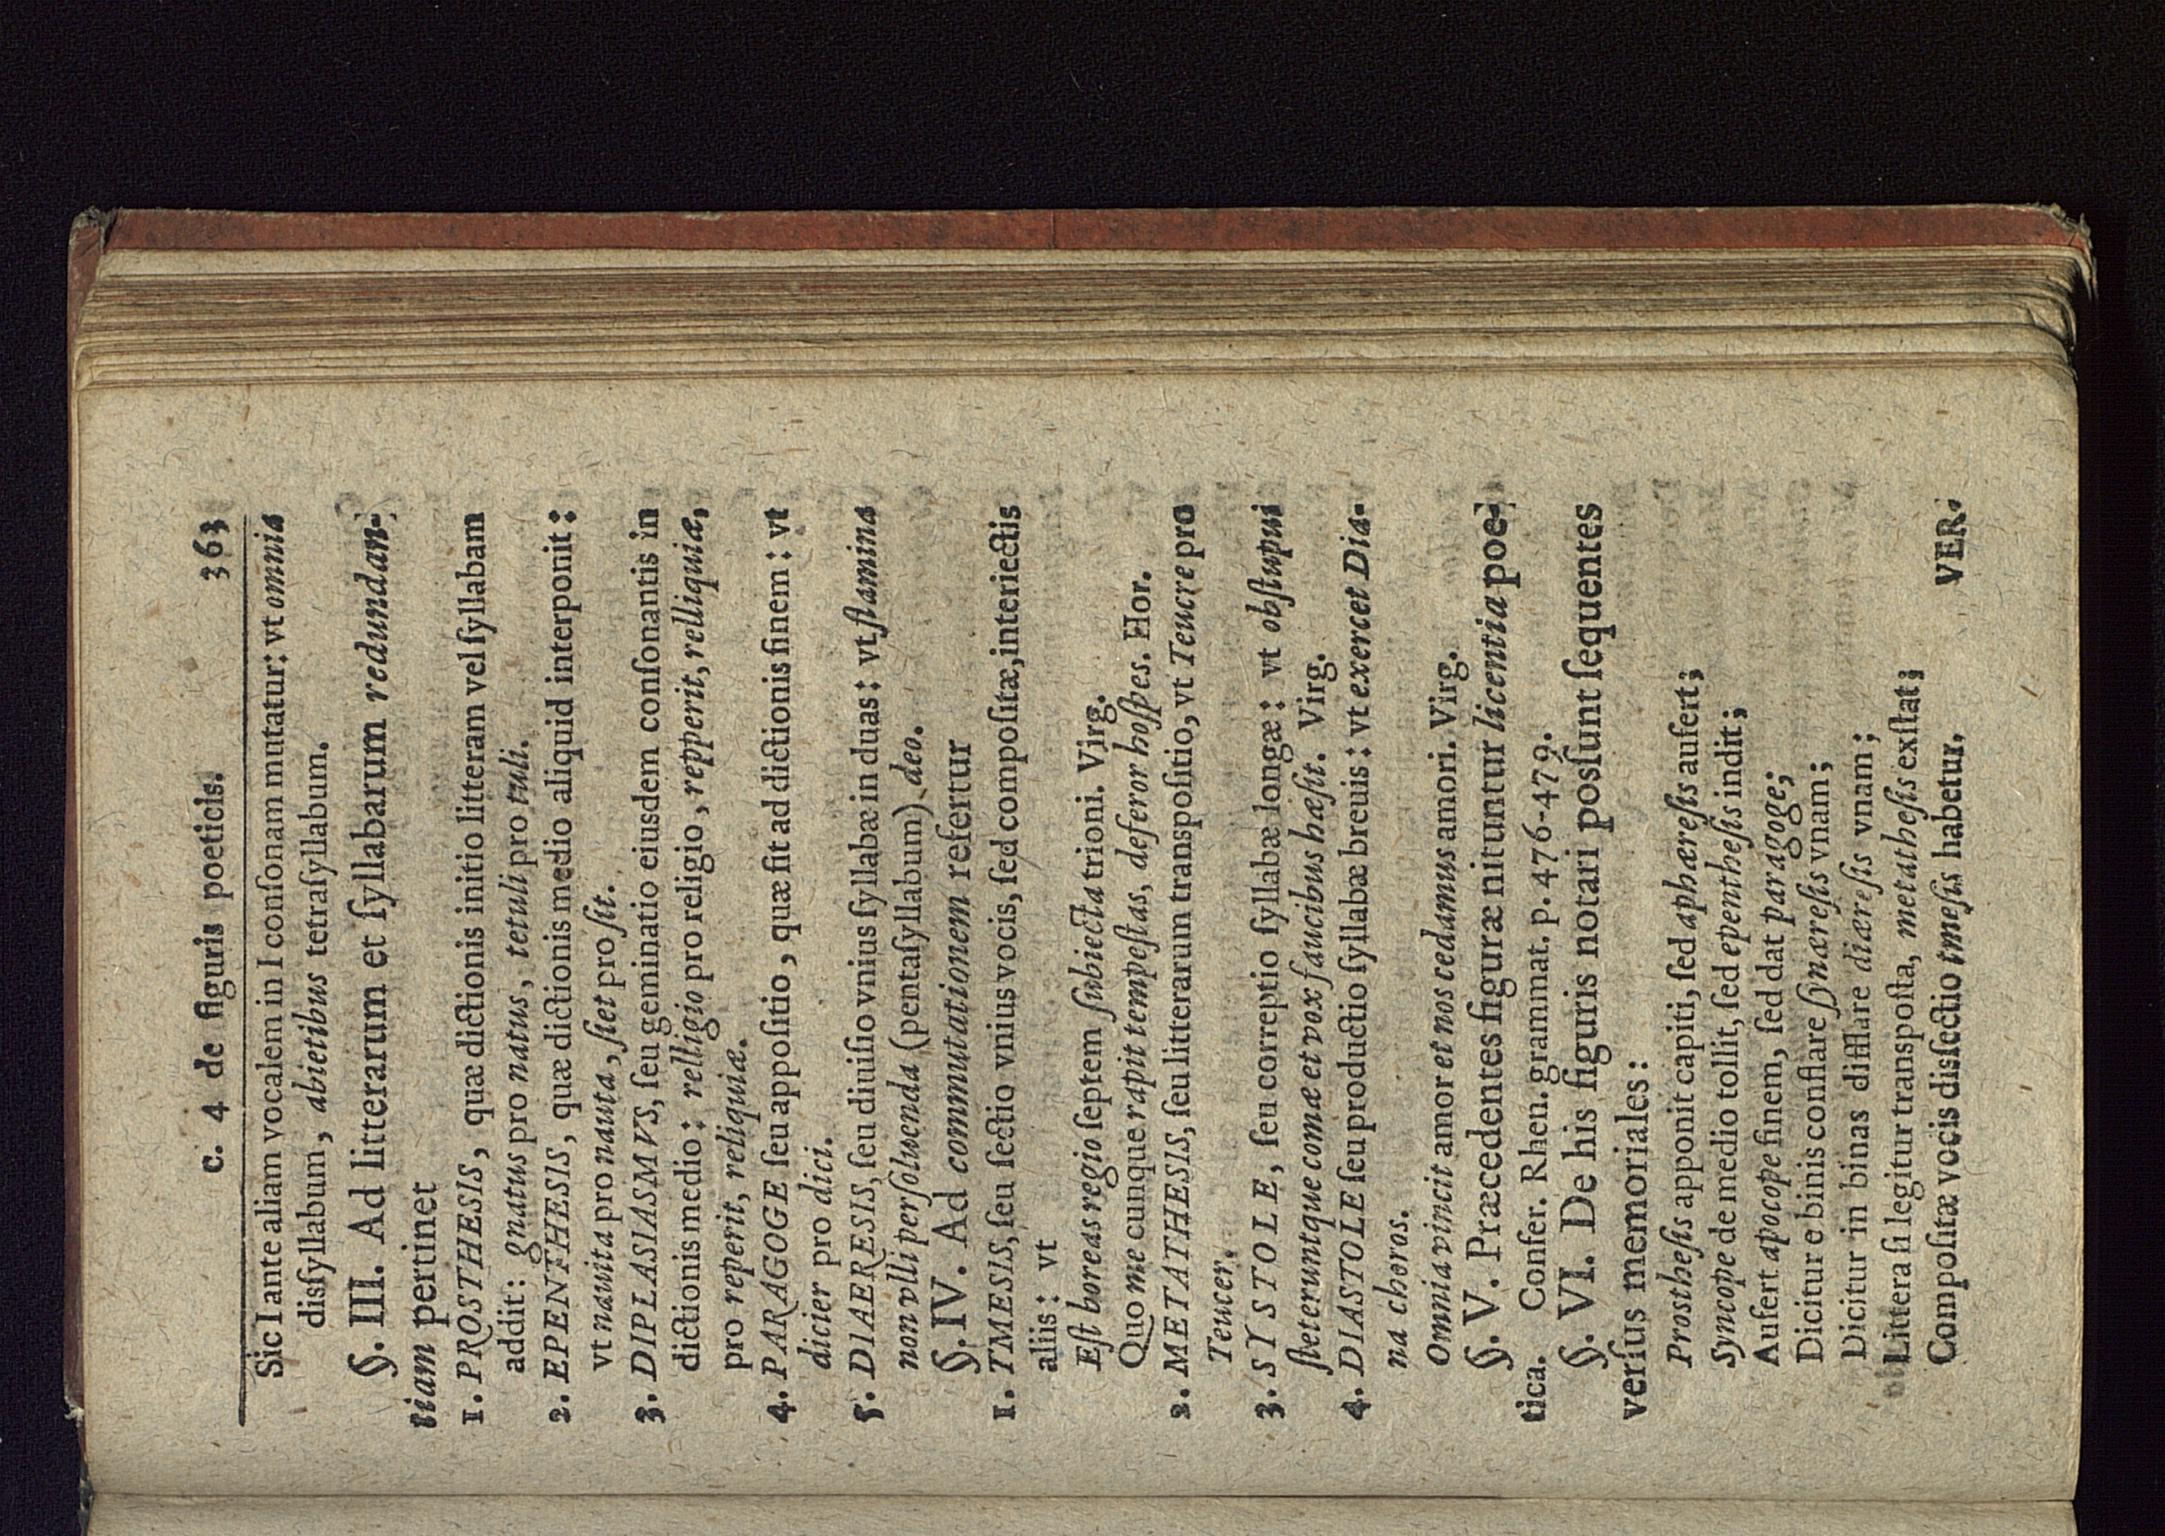 c. 4 de figuris poeticis. 363
Sic I ante aliam vocalem in I conſonam mutatur: vt omnia
disſyllabum, abietibus tetraſyllabum.
§. III. Ad litterarum et ſyllabarum redundan-
tiam pertinet
1. PROSTHESIS, quæ dictionis initio litteram vel ſyllabam
addit: gnatus pro natus, tetuli pro tuli.
2. EPENTHESIS, quæ dictionis medio aliquid interponit:
vt nauita pro nauta, ſiet pro ſit.
3. DIPLASIASMVS, ſeu geminatio eiusdem conſonantis in
dictionis medio: relligio pro religio, repperit, relliquiæ,
pro reperit, reliquiæ.
4. PARAGOGE ſeu appoſitio, quæ fit ad dictionis finem: vt
dicier pro dici.
5. DIAERESIS, ſeu diuiſio vnius ſyllabæ in duas: vt ſtamina
non vlli perſoluenda (pentaſyllabum) deo.
§. IV. Ad commutationem refertur
1. TMESIS, ſeu ſectio vnius vocis, ſed compoſitæ, interiectis
aliis: vt
Eſt boreas regio ſeptem ſubiecta trioni. Virg.
Quo me cunque rapit tempeſtas, deferor hoſpes. Hor.
2. METATHESIS, ſeu litterarum transpoſitio, vt Teucre pro
Teucer.
3. SYSTOLE, ſeu correptio ſyllabæ longæ: vt obſtupui
ſteteruntque comæ et vox faucibus hæſit. Virg.
4. DIASTOLE ſeu productio ſyllabæ breuis: vt exercet Dia-
na choros.
Omnia vincit amor et nos cedamus amori. Virg.
§. V. Præcedentes figuræ nituntur licentia poe-
tica. Confer. Rhen. grammat. p. 476-479.
§. VI. De his figuris notari posſunt ſequentes
verſus memoriales:
Proſtheſis apponit capiti, ſed aphæreſis aufert;
Syncope de medio tollit, ſed epentheſis indit;
Aufert apocope finem, ſed dat paragoge;
Dicitur e binis conflare ſynæreſis vnam;
Dicitur in binas difflare diæreſis vnam;
Littera ſi legitur transpoſta, metatheſis exſtat;
Compoſitæ vocis disſectio tmeſis habetur.
VER.